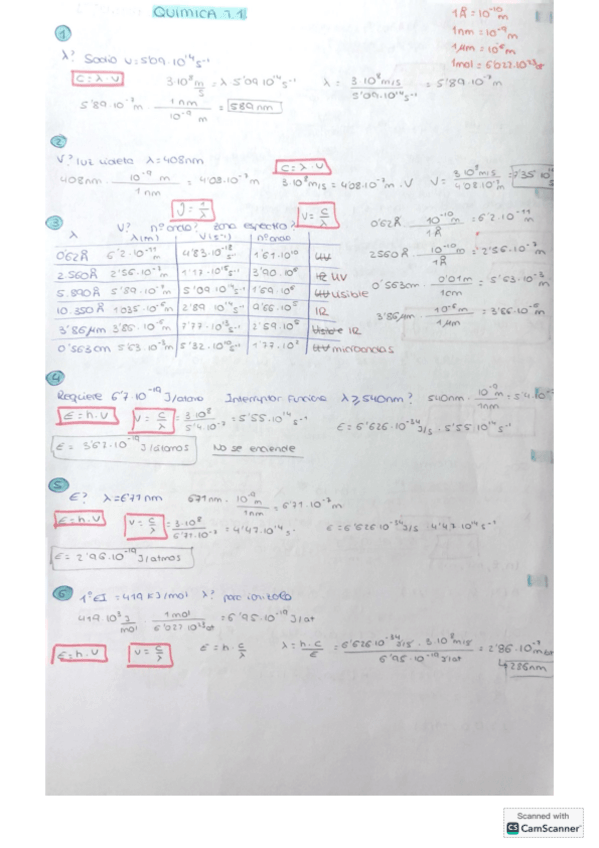 QUIMICA 1.1.
1Å = 10⁻¹⁰ m
1nm = 10⁻⁹ m
1µm = 10⁻⁶ m
1mol = 6'022·10²³
1
λ? Sodio ν = 5'09·10¹⁴ s⁻¹
C = λ·ν 3·10⁸ m/s = λ 5'09·10¹⁴ s⁻¹ λ = 3·10⁸ m/s / 5'09·10¹⁴ s⁻¹ = 5'89·10⁻⁷ m
5'89·10⁻⁷ m · 1nm / 10⁻⁹ m = 589 nm
2
ν? luz violeta λ = 408nm C = λ·ν
408nm · 10⁻⁹ m / 1nm = 4'08·10⁻⁷ m 3·10⁸ m/s = 4'08·10⁻⁷ m · ν ν = 3·10⁸ m/s / 4'08·10⁻⁷ m = 7'35 10
3 ν? nº onda? zona espectro? ν = c/λ
λ λ(m) ν(s⁻¹) nº onda
0'62Å 6'2·10⁻¹¹ 4'83·10⁻¹⁸ 1'61·10¹⁰ UV
2.560Å 2'56·10⁻⁷ 1'17·10¹⁵ 3'90·10⁶ IR UV
5.890Å 5'89·10⁻⁷ 5'09·10¹⁴ 1'69·10⁶ UV visible
10.350Å 1'035·10⁻⁶ 2'89·10¹⁴ 9'66·10⁵ IR
3'86µm 3'86·10⁻⁶ 7'77·10¹³ 2'59·10⁵ Visible IR
0'563cm 5'63·10⁻³ 5'32·10¹⁰ 1'77·10² UV microondas
0'62Å · 10⁻¹⁰ m / 1Å = 6'2·10⁻¹¹
2560Å · 10⁻¹⁰ m / 1Å = 2'56·10⁻⁷
0'563cm · 0'01m / 1cm = 5'63·10⁻³
3'86µm · 10⁻⁶ m / 1µm = 3'86·10⁻⁶
4
Requiere 6'7·10⁻¹⁹ J/átomo Interruptor funciona λ ≥ 540nm? 540nm · 10⁻⁹ m / 1nm = 5'4·10⁻⁷
E = h·ν ν = c/λ = 3·10⁸ / 5'4·10⁻⁷ = 5'55·10¹⁴ s⁻¹ E = 6'626·10⁻³⁴ J/s · 5'55 10¹⁴ s⁻¹
E = 3'67·10⁻¹⁹ J/átomos No se enciende
5
E? λ = 671nm 671nm · 10⁻⁹ m / 1nm = 6'71·10⁻⁷ m
E = h·ν ν = c/λ = 3·10⁸ / 6'71·10⁻⁷ = 4'47·10¹⁴ s· E = 6'626·10⁻³⁴ J/s · 4'47·10¹⁴ s⁻¹
E = 2'96·10⁻¹⁹ J/atmos
6 1ºEI = 419 KJ/mol λ? para ionizarlo
419·10³ J/mol · 1mol / 6'022·10²³ at = 6'95·10⁻¹⁹ J/at
E = h·ν ν = c/λ E = h·c/λ λ = h·c/E = 6'626·10⁻³⁴ J/s · 3·10⁸ m/s / 6'96·10⁻¹⁹ J/at = 2'86·10⁻⁷ m
↳ 286nm
Scanned with
CS CamScanner